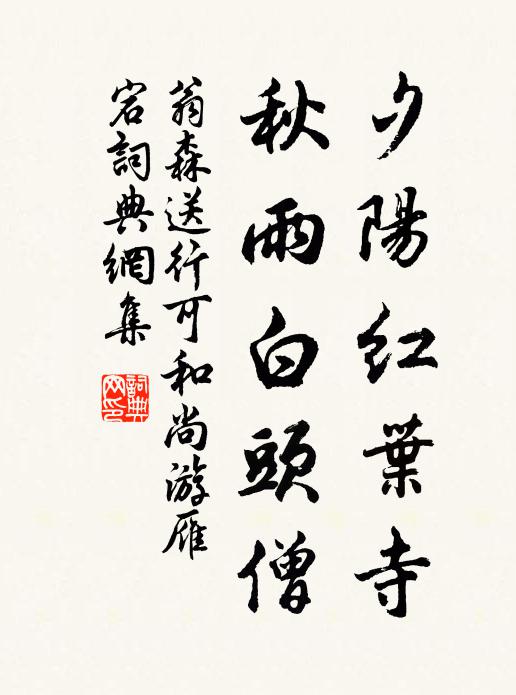 夕陽紅葉寺
秋雨白頭僧
翁森送行可和尚游雁
宕詞典網集
詞典
网印